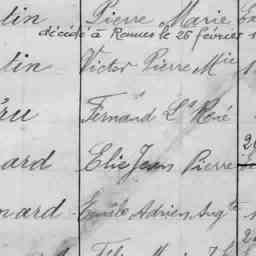 lin Pierre Marie
décédé à Rennes le 26 février
lin Victor Pierre Mie
Fernand Ls René
ard Elie Jean Pierre
nard Emile Adrien Augte